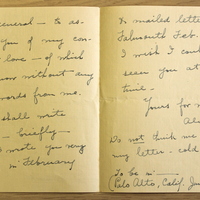 general – to as-
you of my con-
love – of which
now without any
words from me.
shall write
– briefly –
wrote you very
in February
I mailed letter
Falmouth Feb.
I wish I could
seen you at
time –
Yours for
Do not think me
my letter – cold
To be in –
(Palo Alto, Calif.